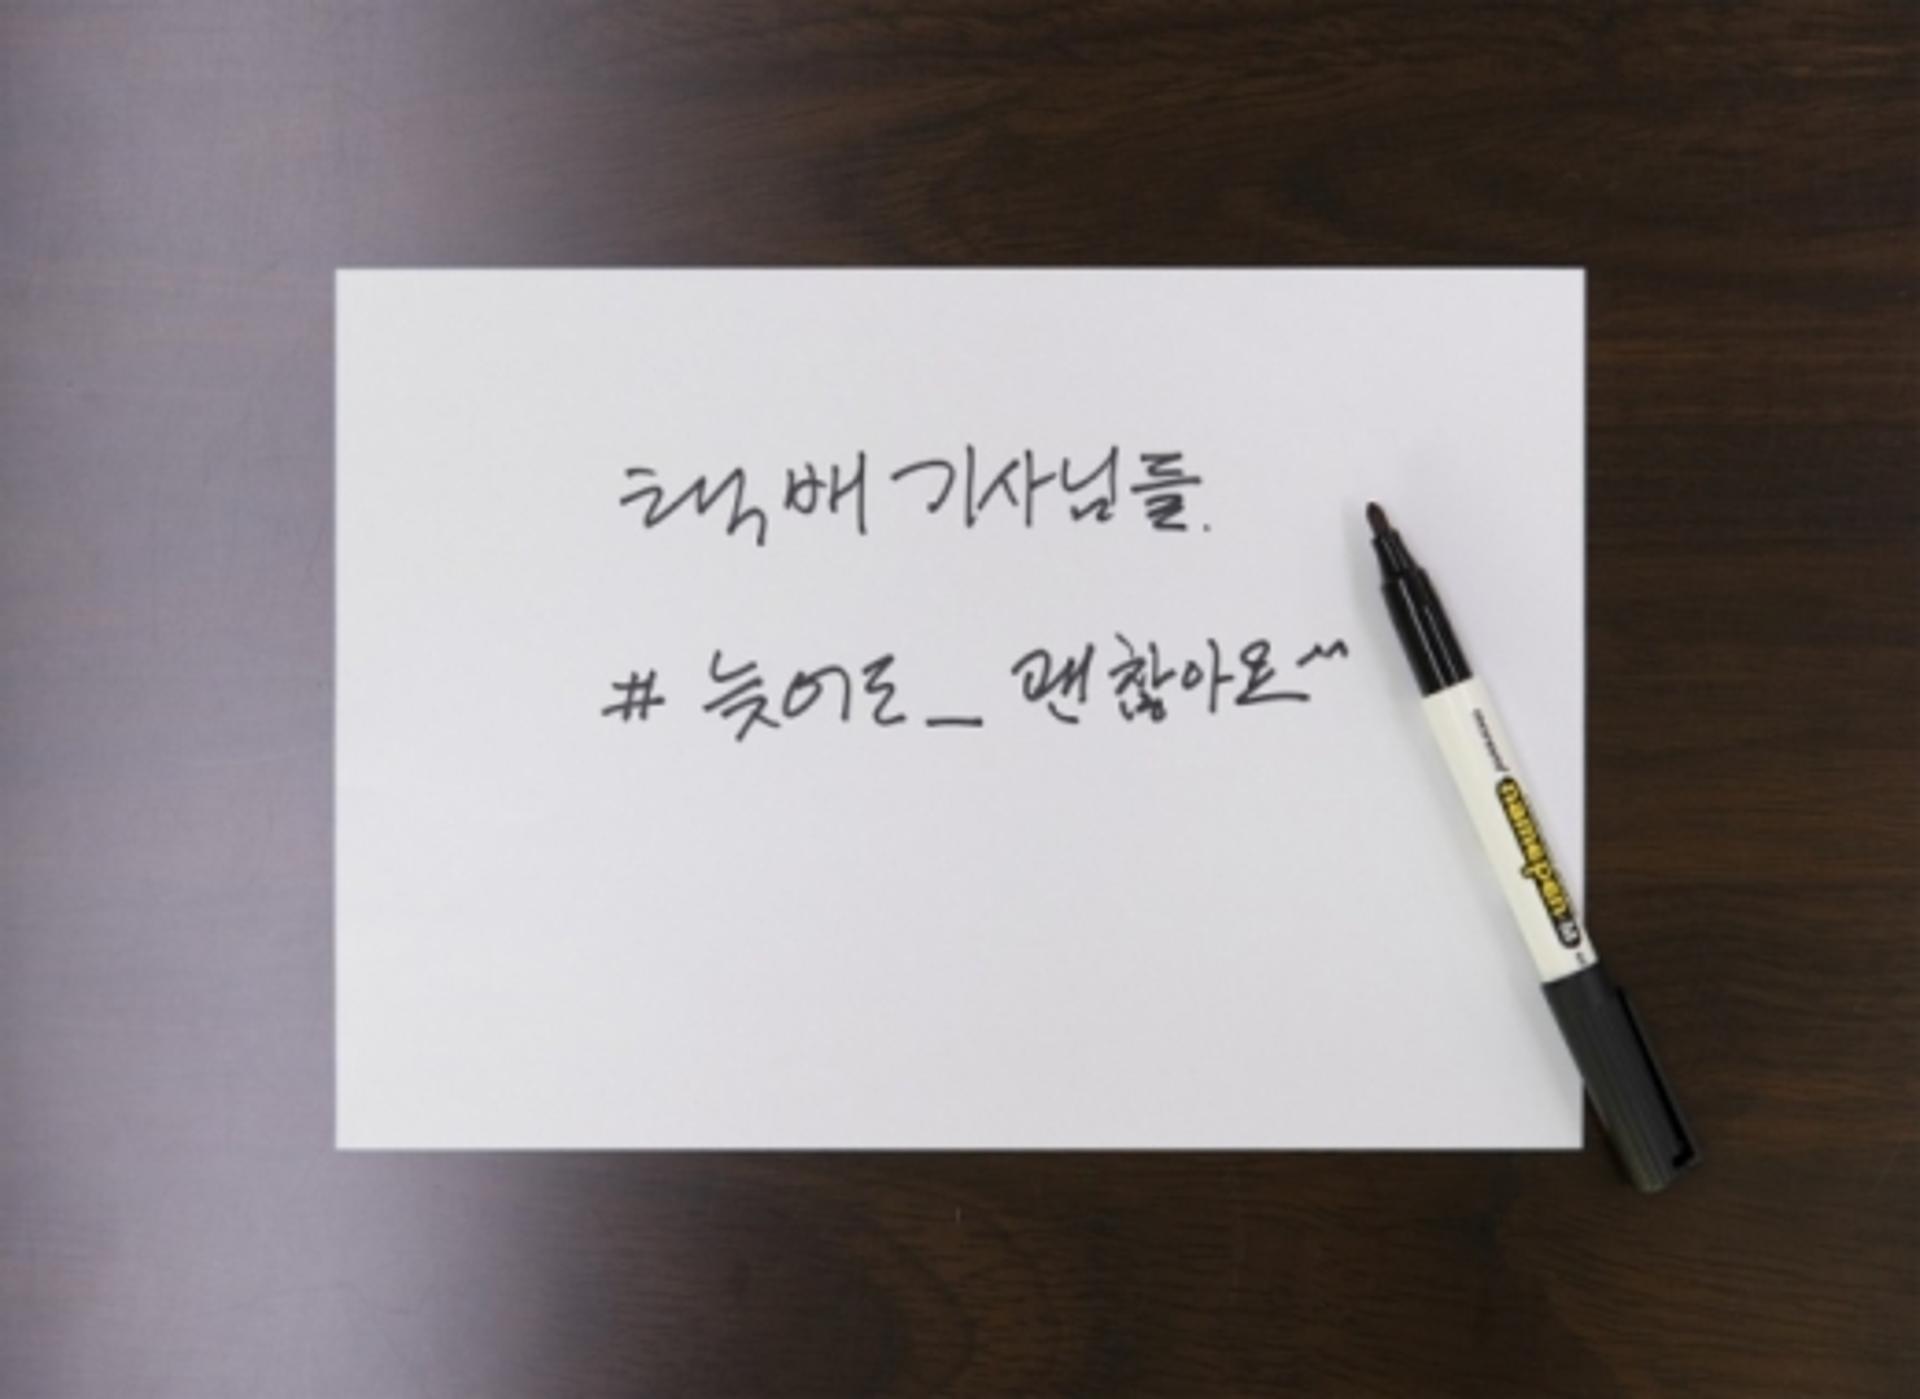 택배 기사님들.
# 늦어도_ 괜찮아요^^
namepen M